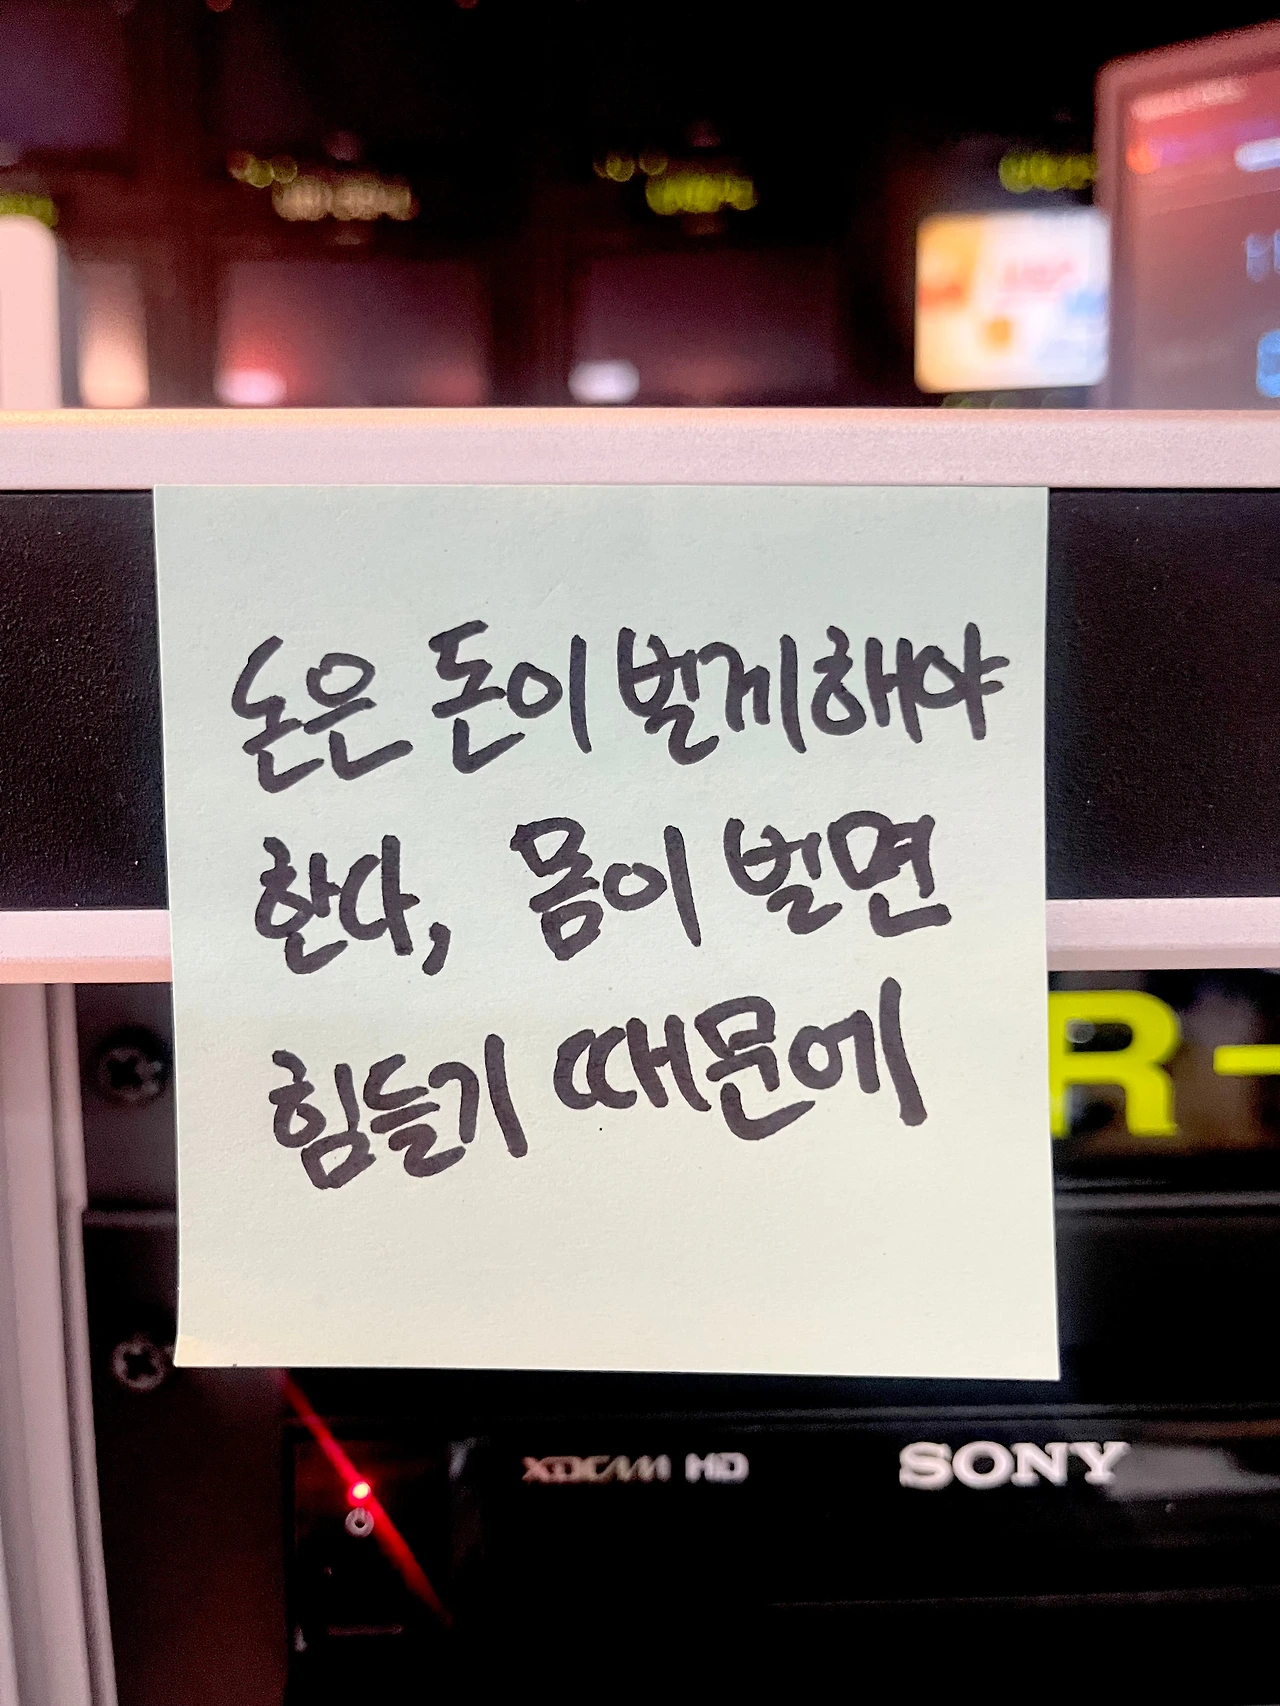 돈은 돈이 벌게해야
한다, 몸이 벌면
힘들기 때문에
R-
XDCAM HD
SONY